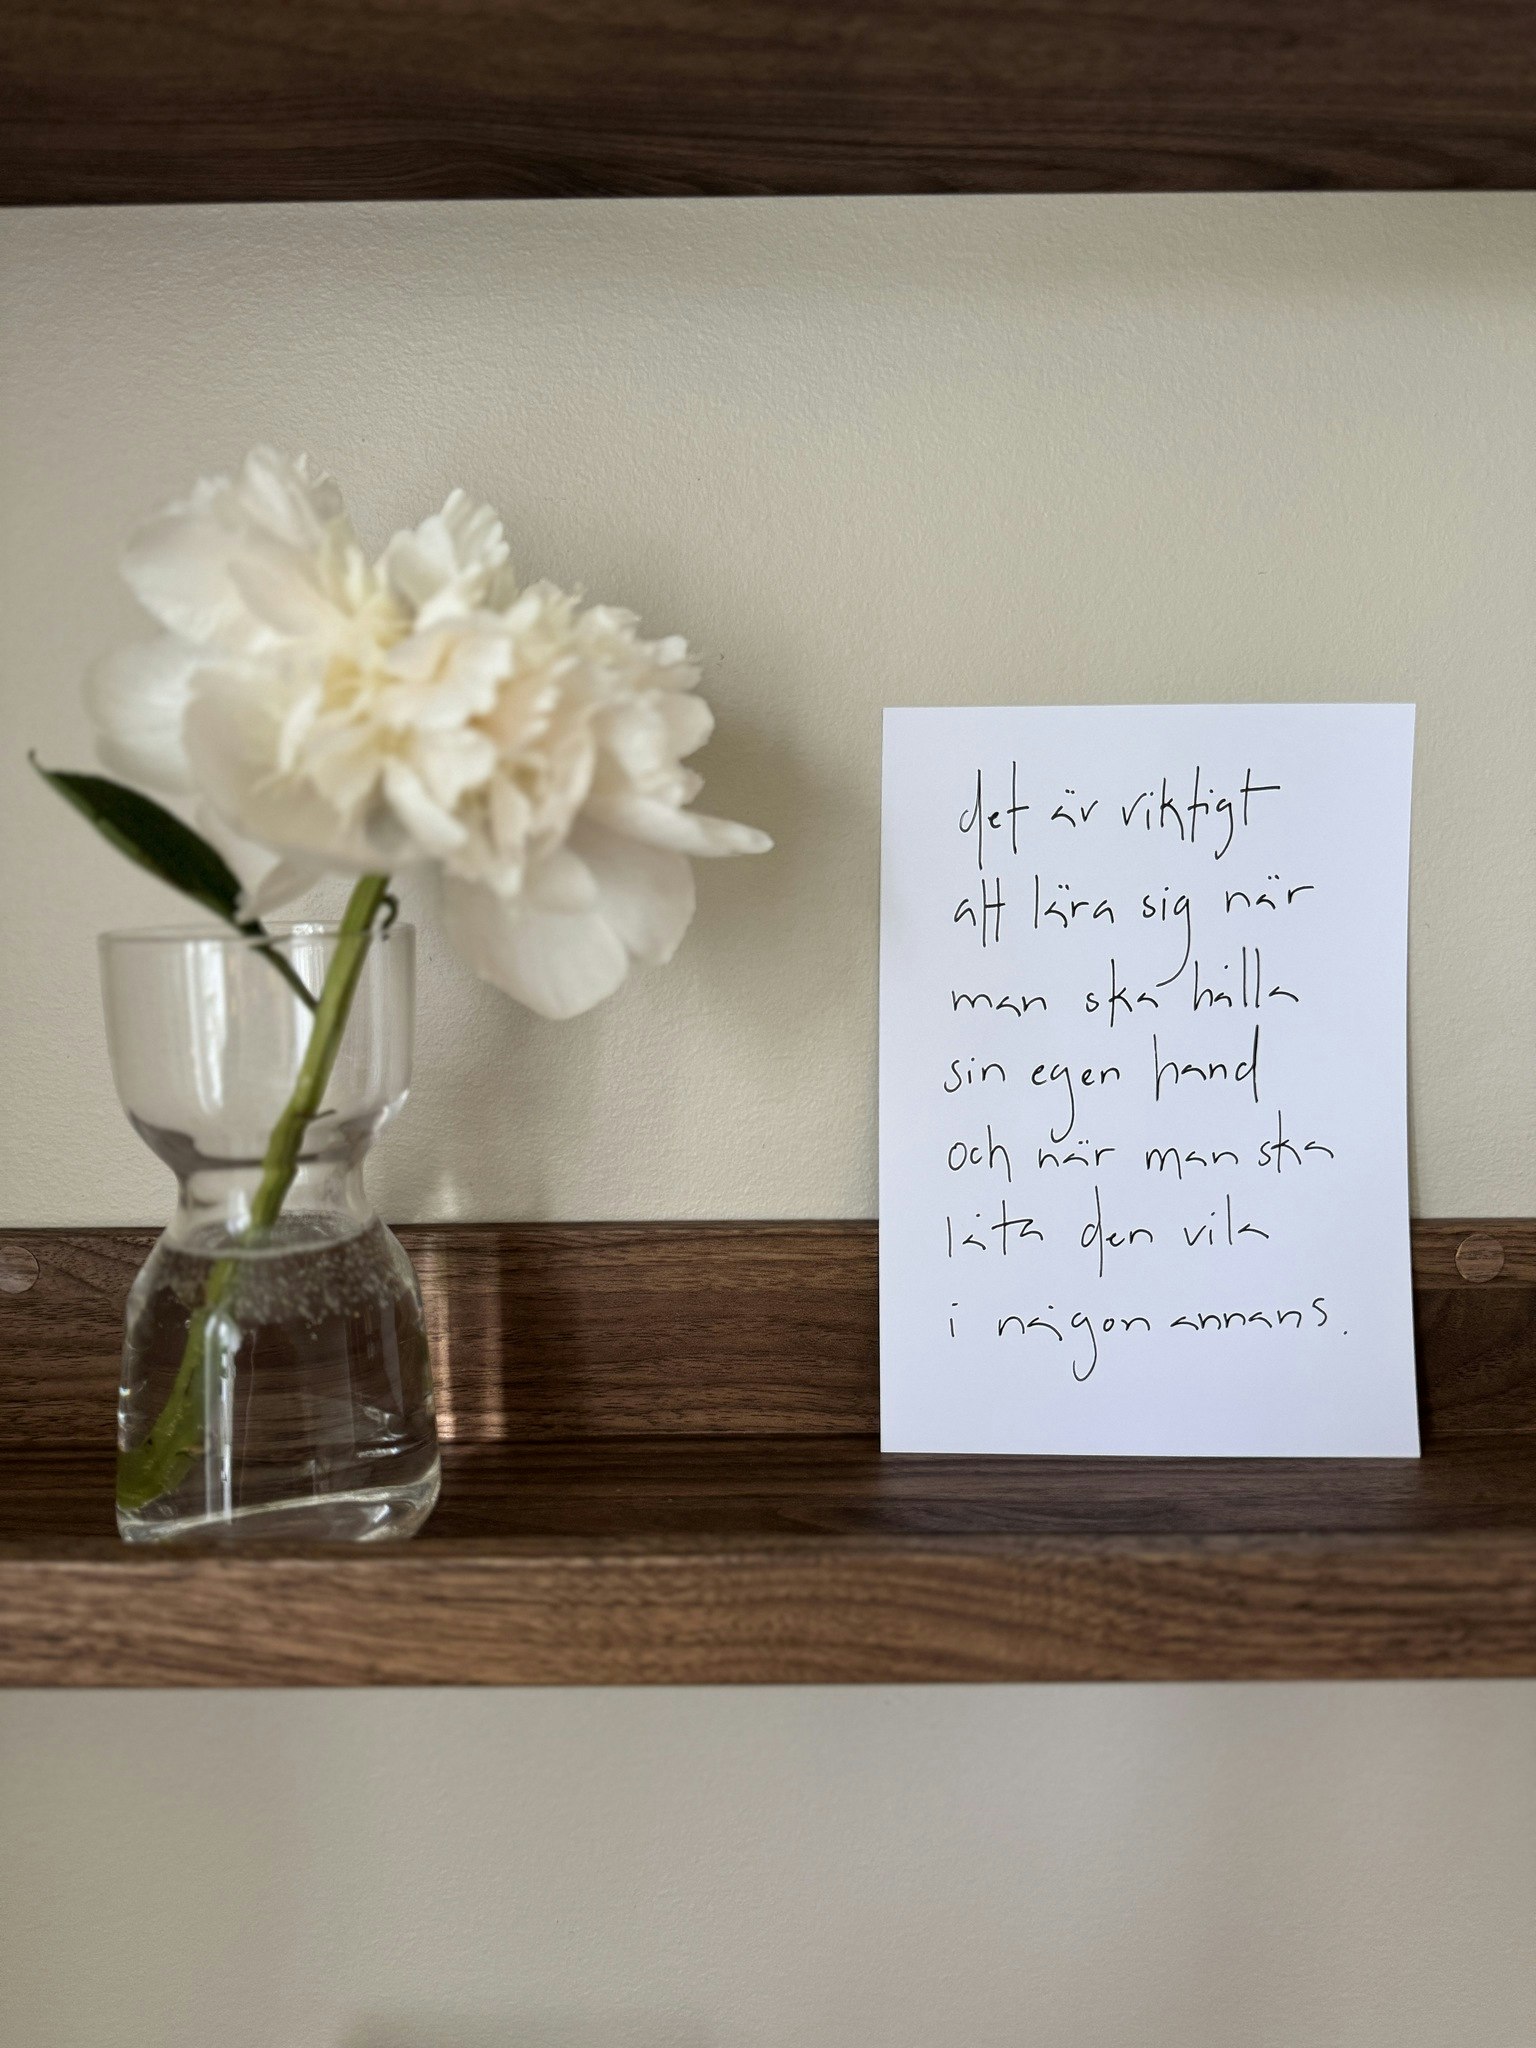 det är viktigt
att lära sig när
man ska hålla
sin egen hand
och när man ska
låta den vila
i någon annans.